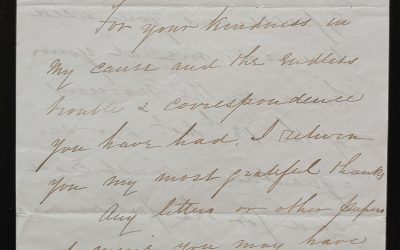 For your kindness in
my cause and the Endless
trouble & correspondence
you have had. I return
you my most grateful thanks
Any letters or other papers
you may have